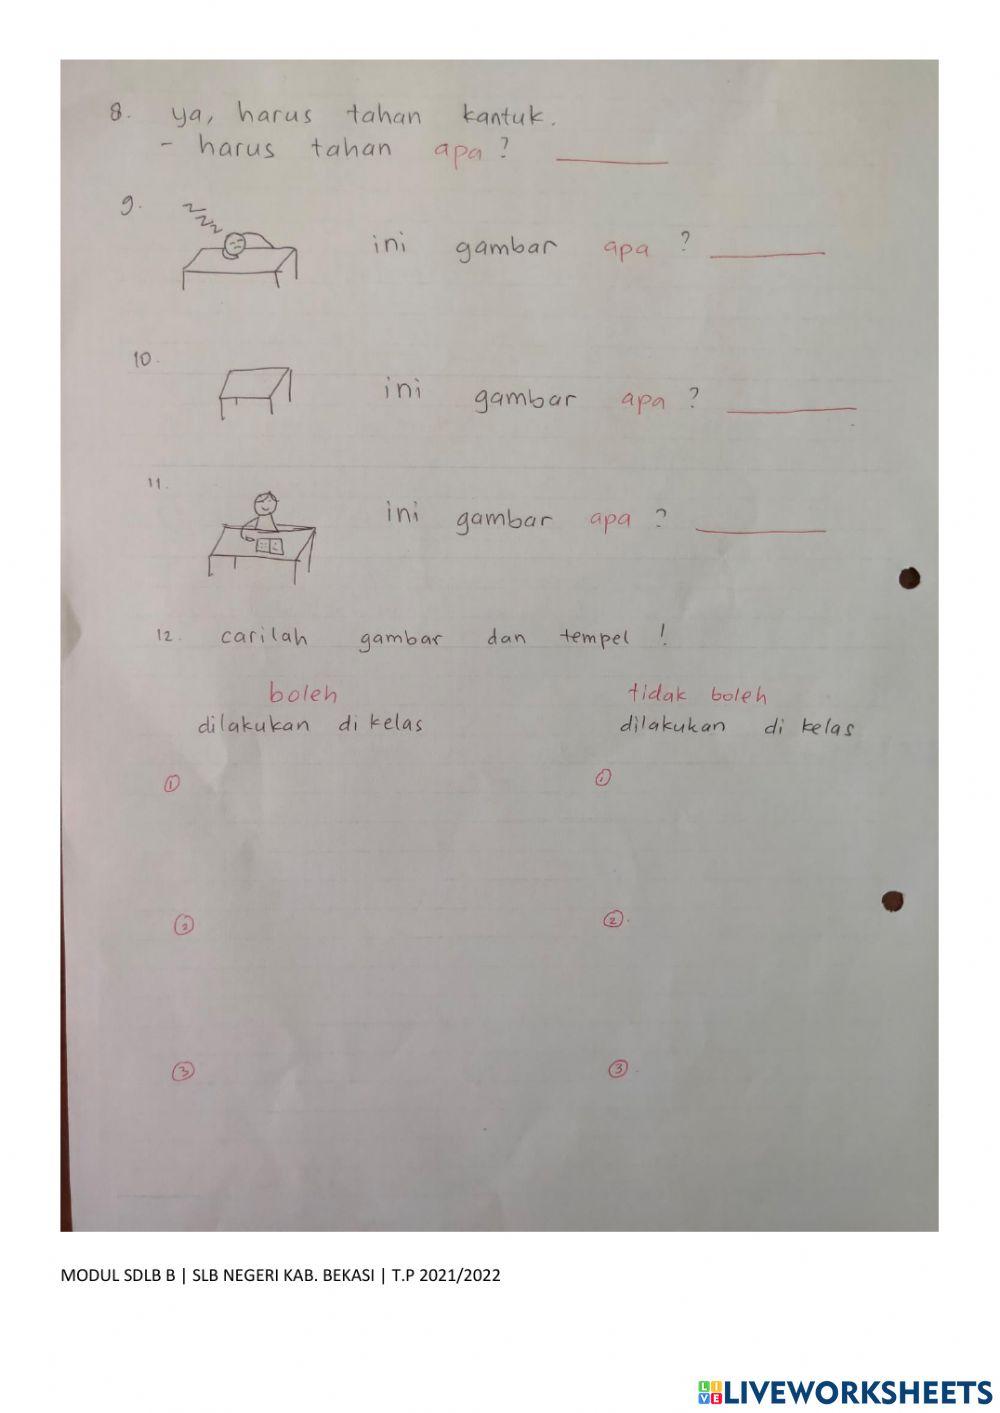 8. ya, harus tahan kantuk.
- harus tahan apa ? ________
9. zzz ini gambar apa ? ________
10. ini gambar apa ? ________
11. ini gambar apa ? ________
12. carilah gambar dan tempel !
boleh tidak boleh
dilakukan di kelas dilakukan di kelas
① ①
② ②.
③ ③.
MODUL SDLB B | SLB NEGERI KAB. BEKASI | T.P 2021/2022
LIVE LIVEWORKSHEETS